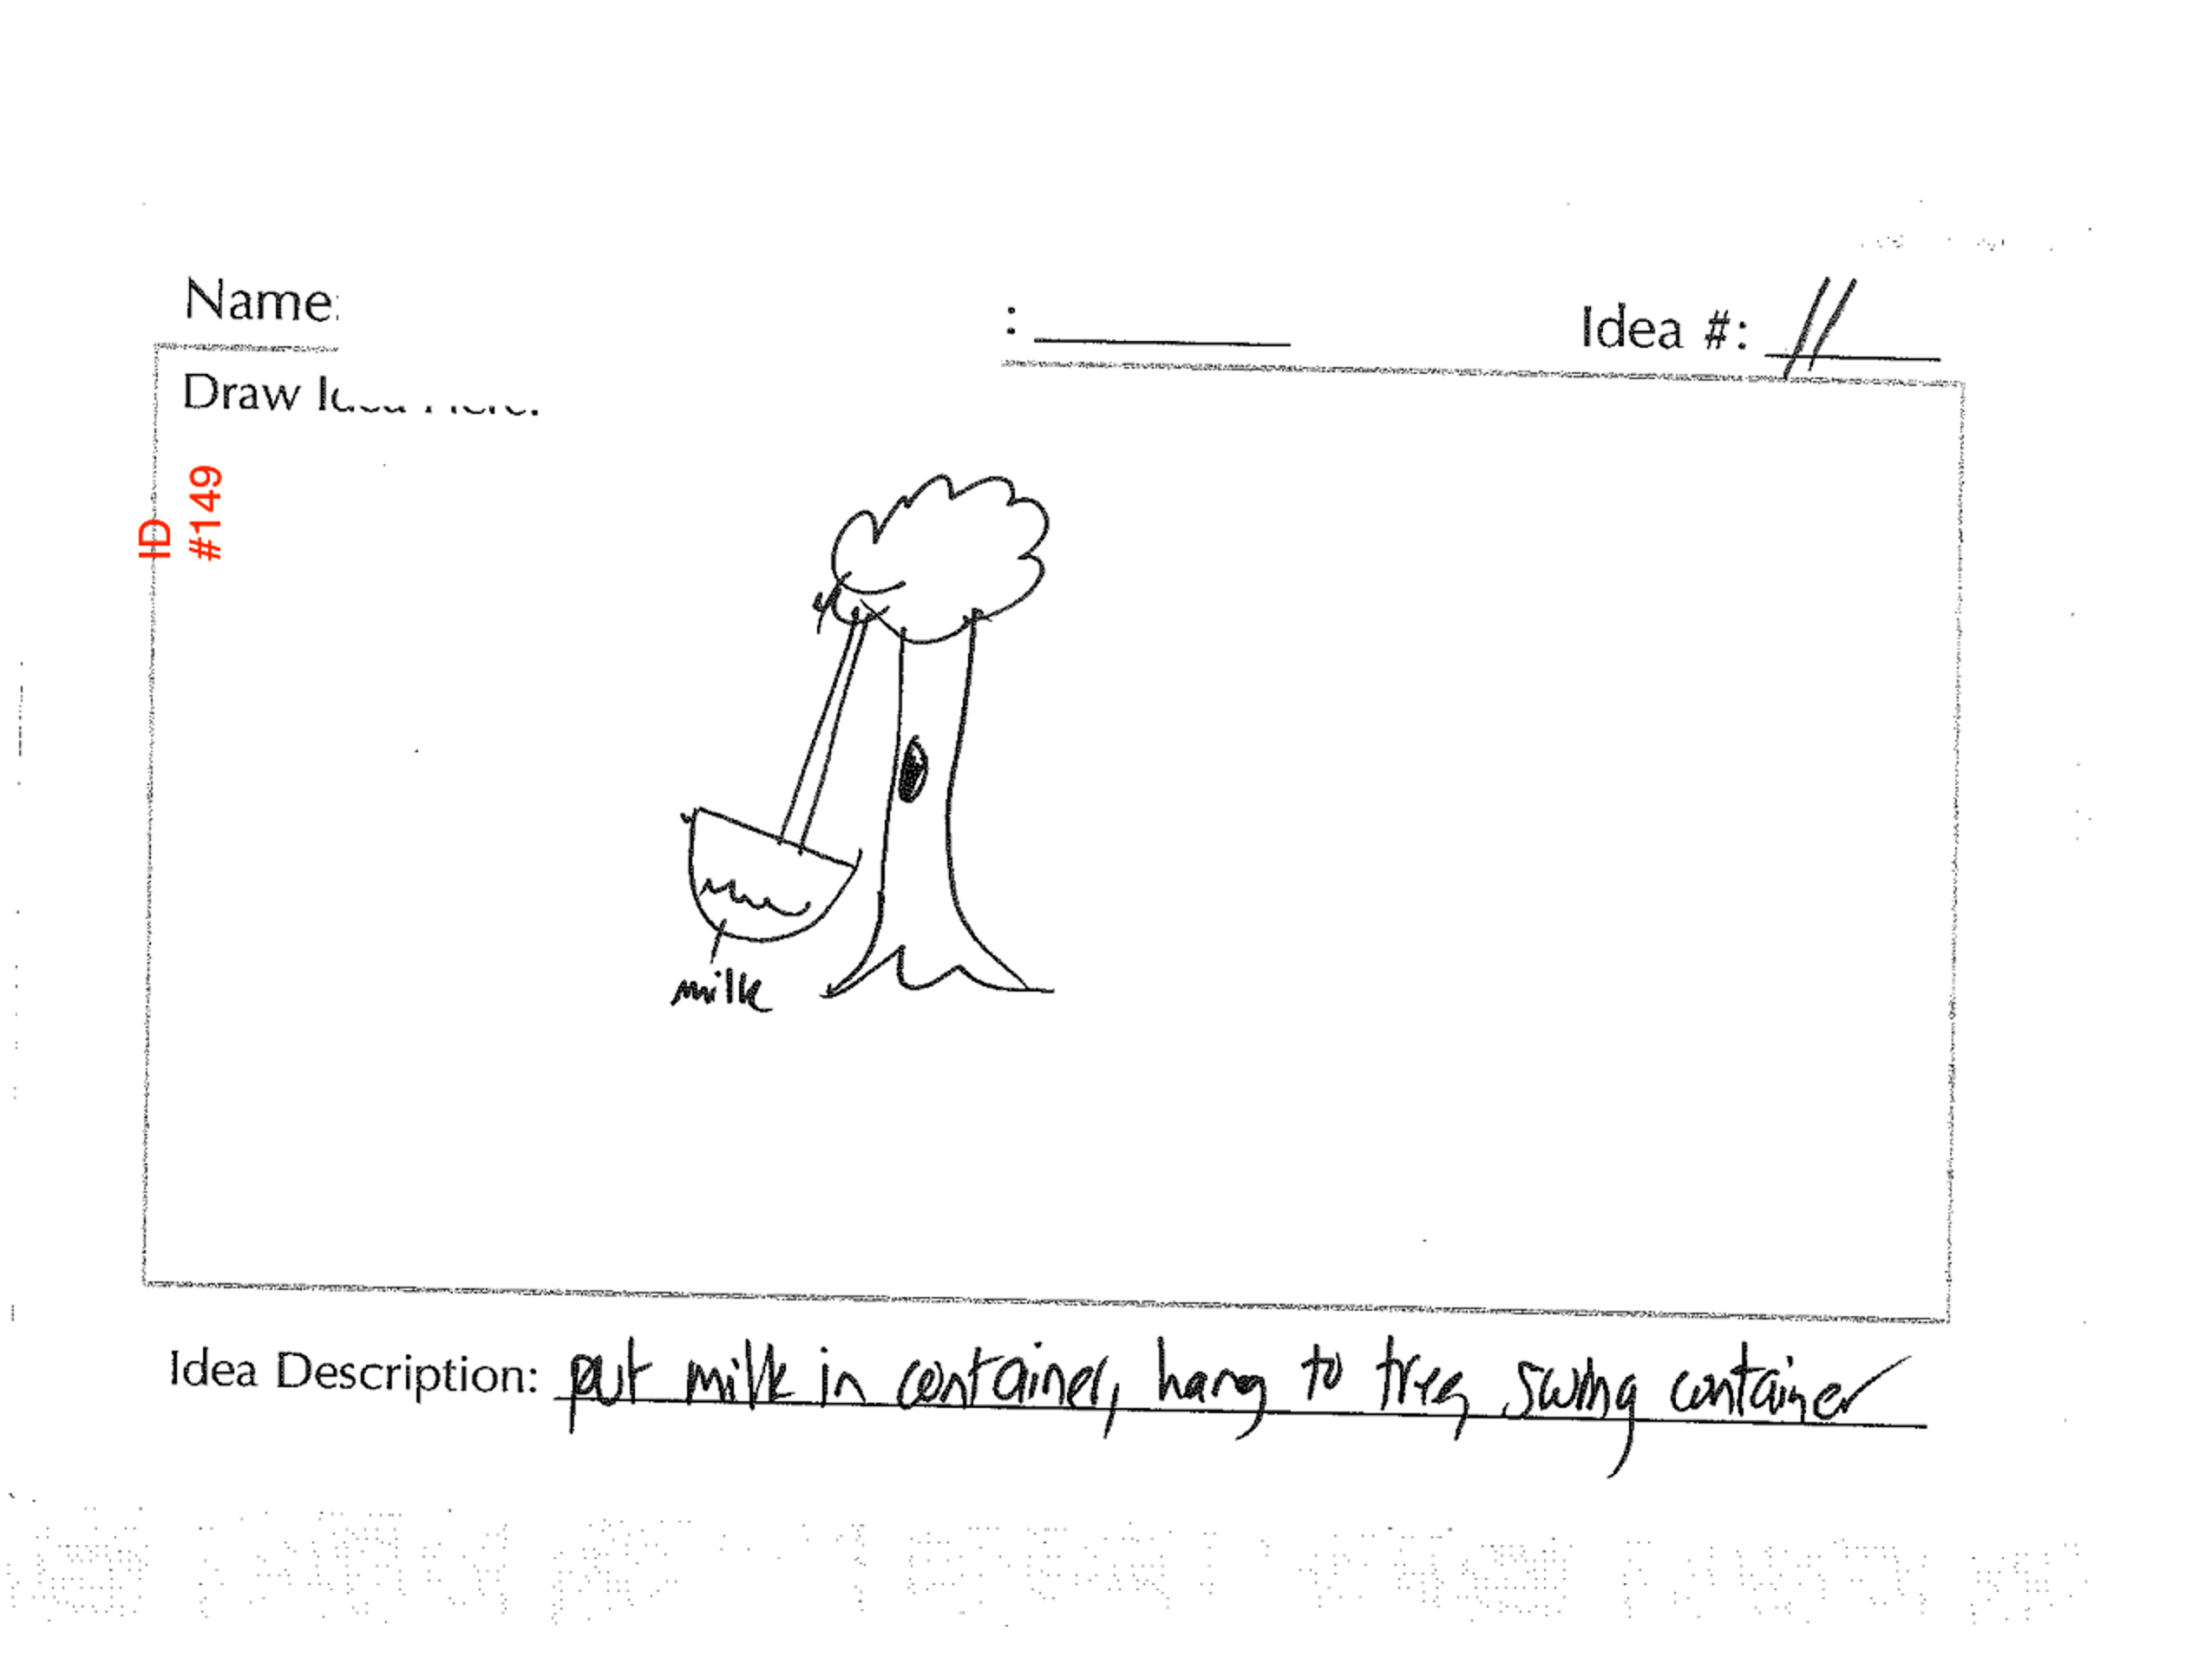 Name:
: Idea #: 11
Draw Idea Here:
ID
#149
milk
Idea Description: put milk in container, hang to tree, swing container